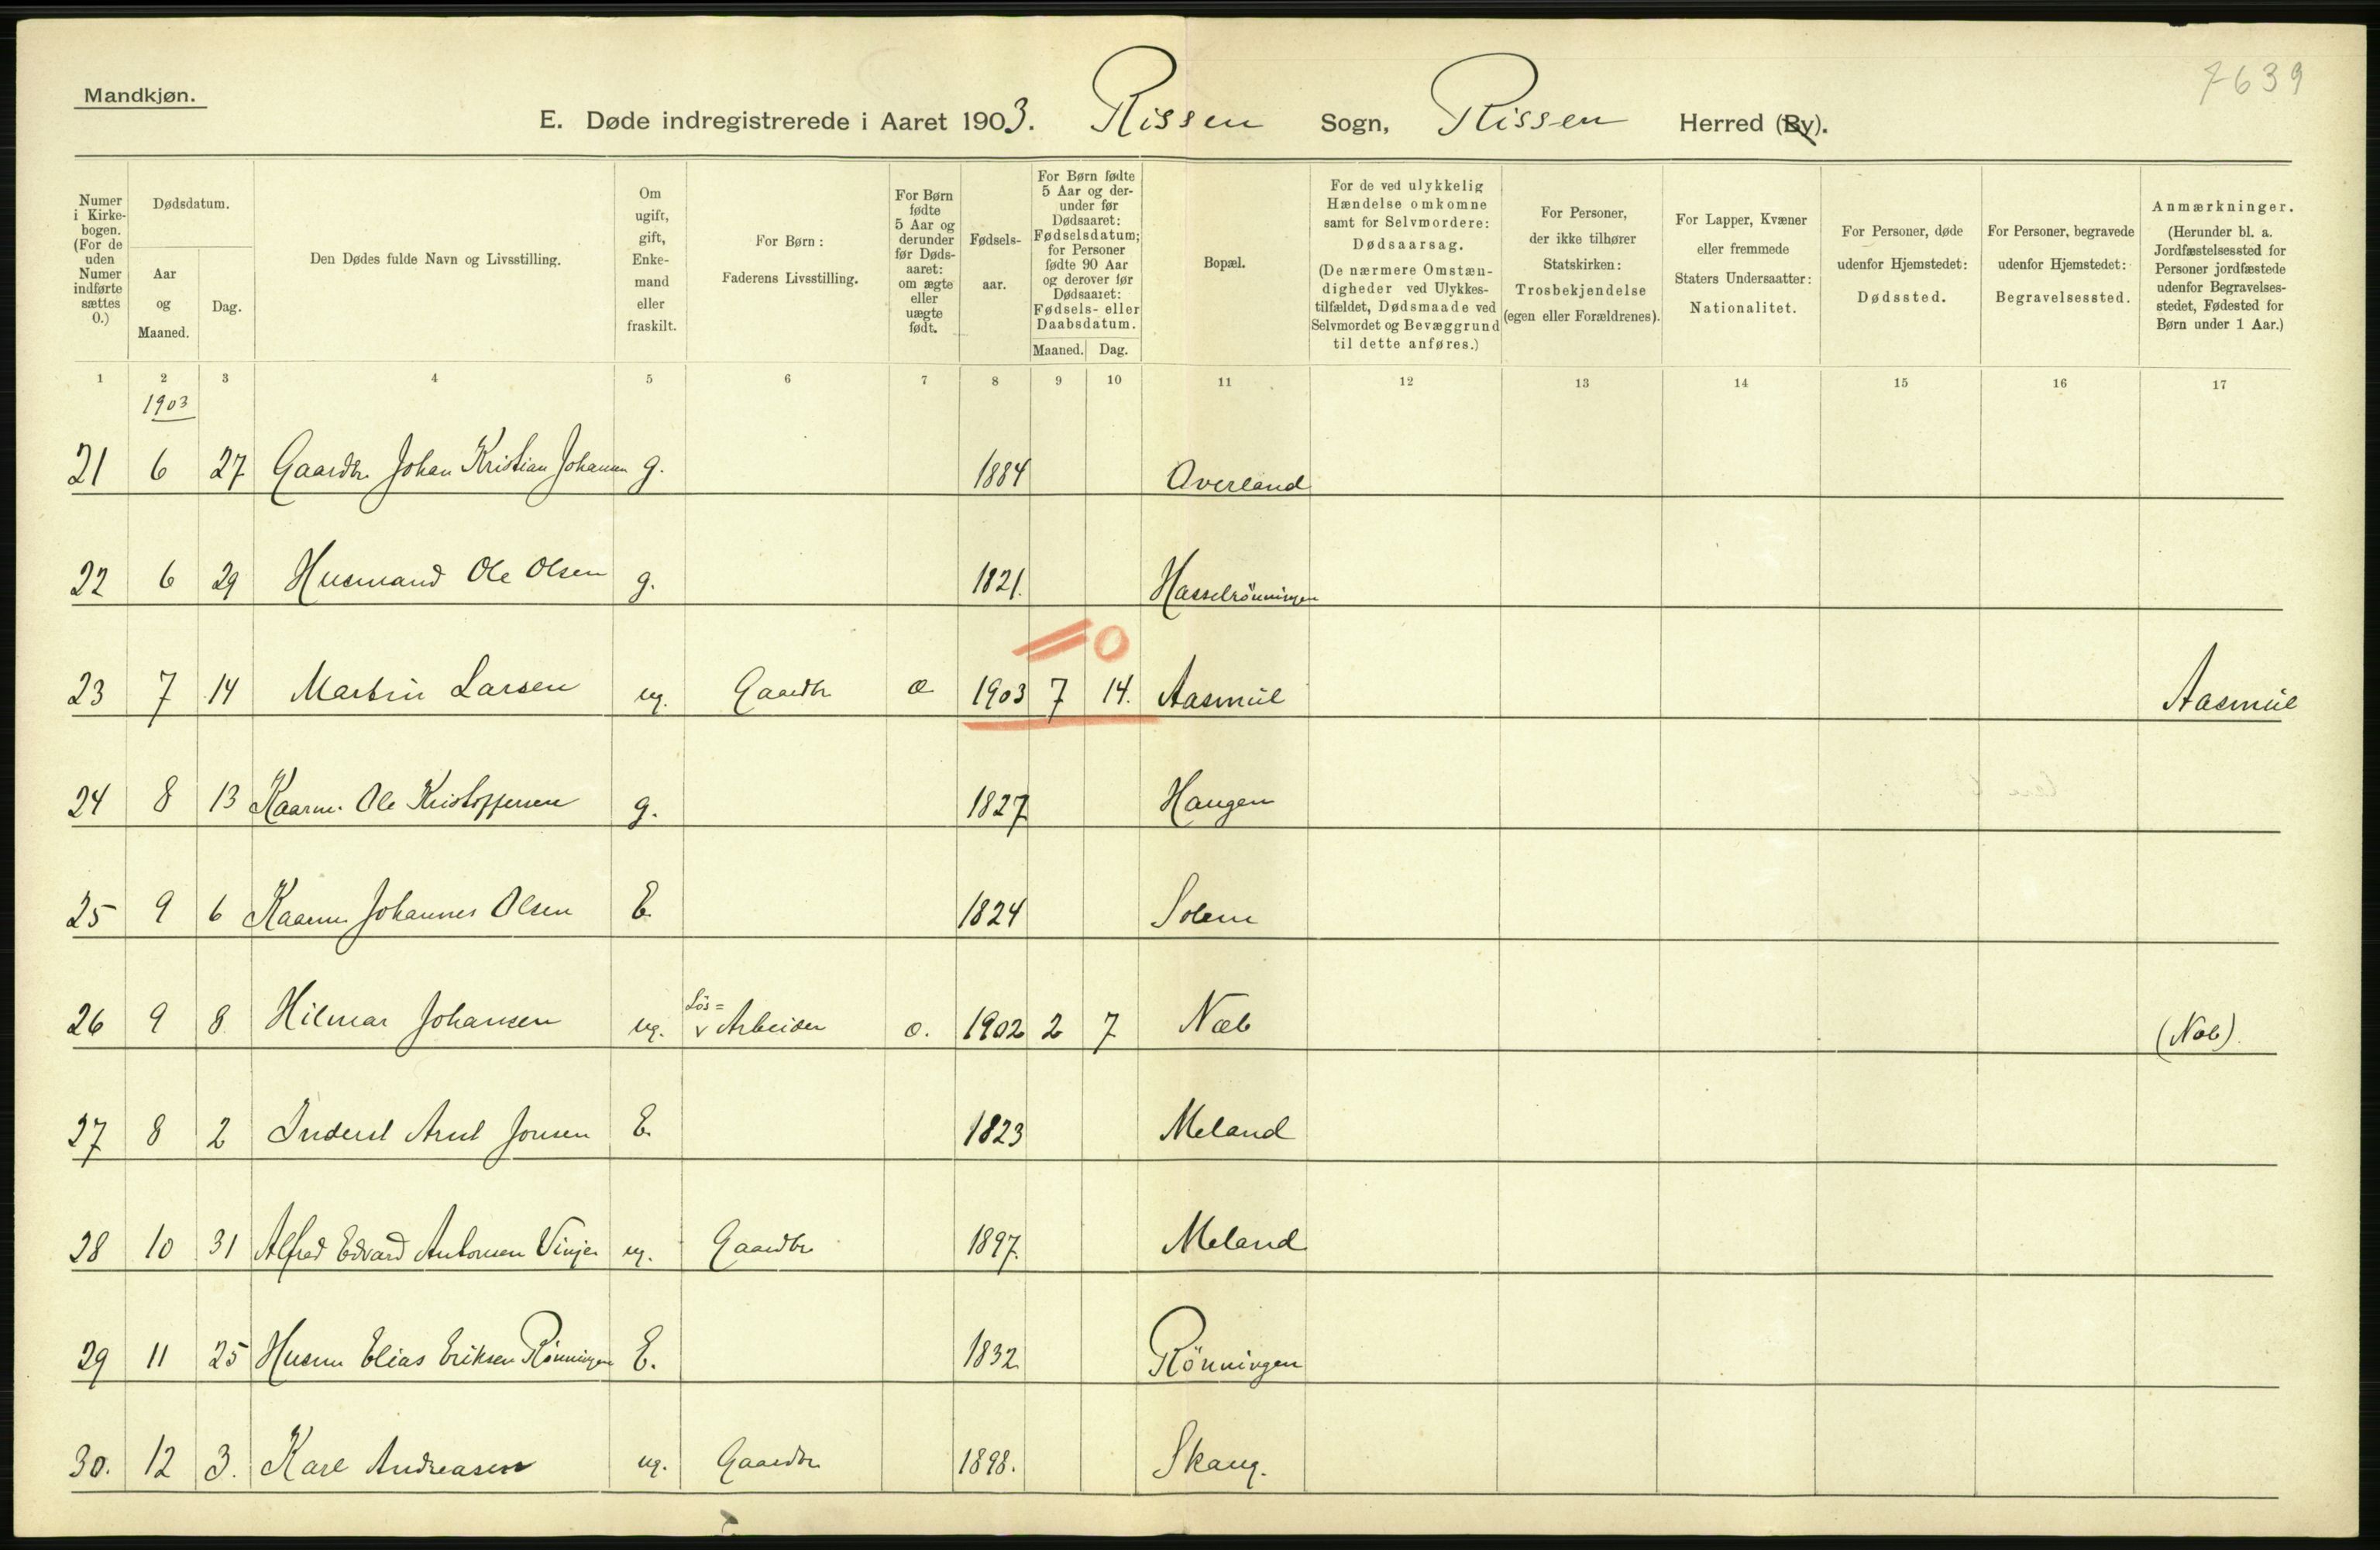 7639
Mandkjøn.
E. Døde indregistrerede i Aaret 1903. Rissen Sogn, Rissen Herred (By).
Numer i Kirke-bogen. (For de uden Numer indførte sættes 0.)
Dødsdatum.
Aar og Maaned.
Dag.
Den Dødes fulde Navn og Livsstilling.
Om ugift, gift, Enke-mand eller fraskilt.
For Børn: Faderens Livsstilling.
For Børn fødte 5 Aar og derunder før Døds-aaret: om ægte eller uægte født.
Fødsels-aar.
For Børn fødte 5 Aar og der-under før Dødsaaret: Fødselsdatum; for Personer fødte 90 Aar og derover før Dødsaaret: Fødsels- eller Daabsdatum.
Maaned. Dag.
Bopæl.
For de ved ulykkelig Hændelse omkomne samt for Selvmordere: Dødsaarsag. (De nærmere Omstæn-digheder ved Ulykkes-tilfældet, Dødsmaade ved Selvmordet og Bevæggrund til dette anføres.)
For Personer, der ikke tilhører Statskirken: Trosbekjendelse (egen eller Forældrenes).
For Lapper, Kvæner eller fremmede Staters Undersaatter: Nationalitet.
For Personer, døde udenfor Hjemstedet: Dødssted.
For Personer, begravede udenfor Hjemstedet: Begravelsessted.
Anmærkninger. (Herunder bl. a. Jordfæstelsessted for Personer jordfæstede udenfor Begravelses-stedet, Fødested for Børn under 1 Aar.)
1 2 3 4 5 6 7 8 9 10 11 12 13 14 15 16 17
1903
21 6 27 Gaardbr. Johan Kristian Johansen g. 1884 Overland
22 6 29 Husmand Ole Olsen g. 1821. Hasselrönningen
0
23 7 14 Martin Larsen ug. Gaardbr æ 1903 7 14. Aasmul Aasmul
24 8 13 Kaarm. Ole Kristoffersen g. 1827 Haugen
25 9 6 Kaarm. Johannes Olsen E. 1824 Solem
26 9 8 Hilmar Johansen ug. Lös= v Arbeider o. 1902 2 7 Næb (Næb).
27 8 2 Inderst Arnt Jonsen E. 1823 Meland
28 10 31 Alfred Edvard Antonsen Vinje ug. Gaardbr 1897. Meland
29 11 25 Husm Elias Eriksen Rönningen E. 1832 Rönningen
30. 12 3. Karl Andreasen ug. Gaardbr. 1898. Skaug.